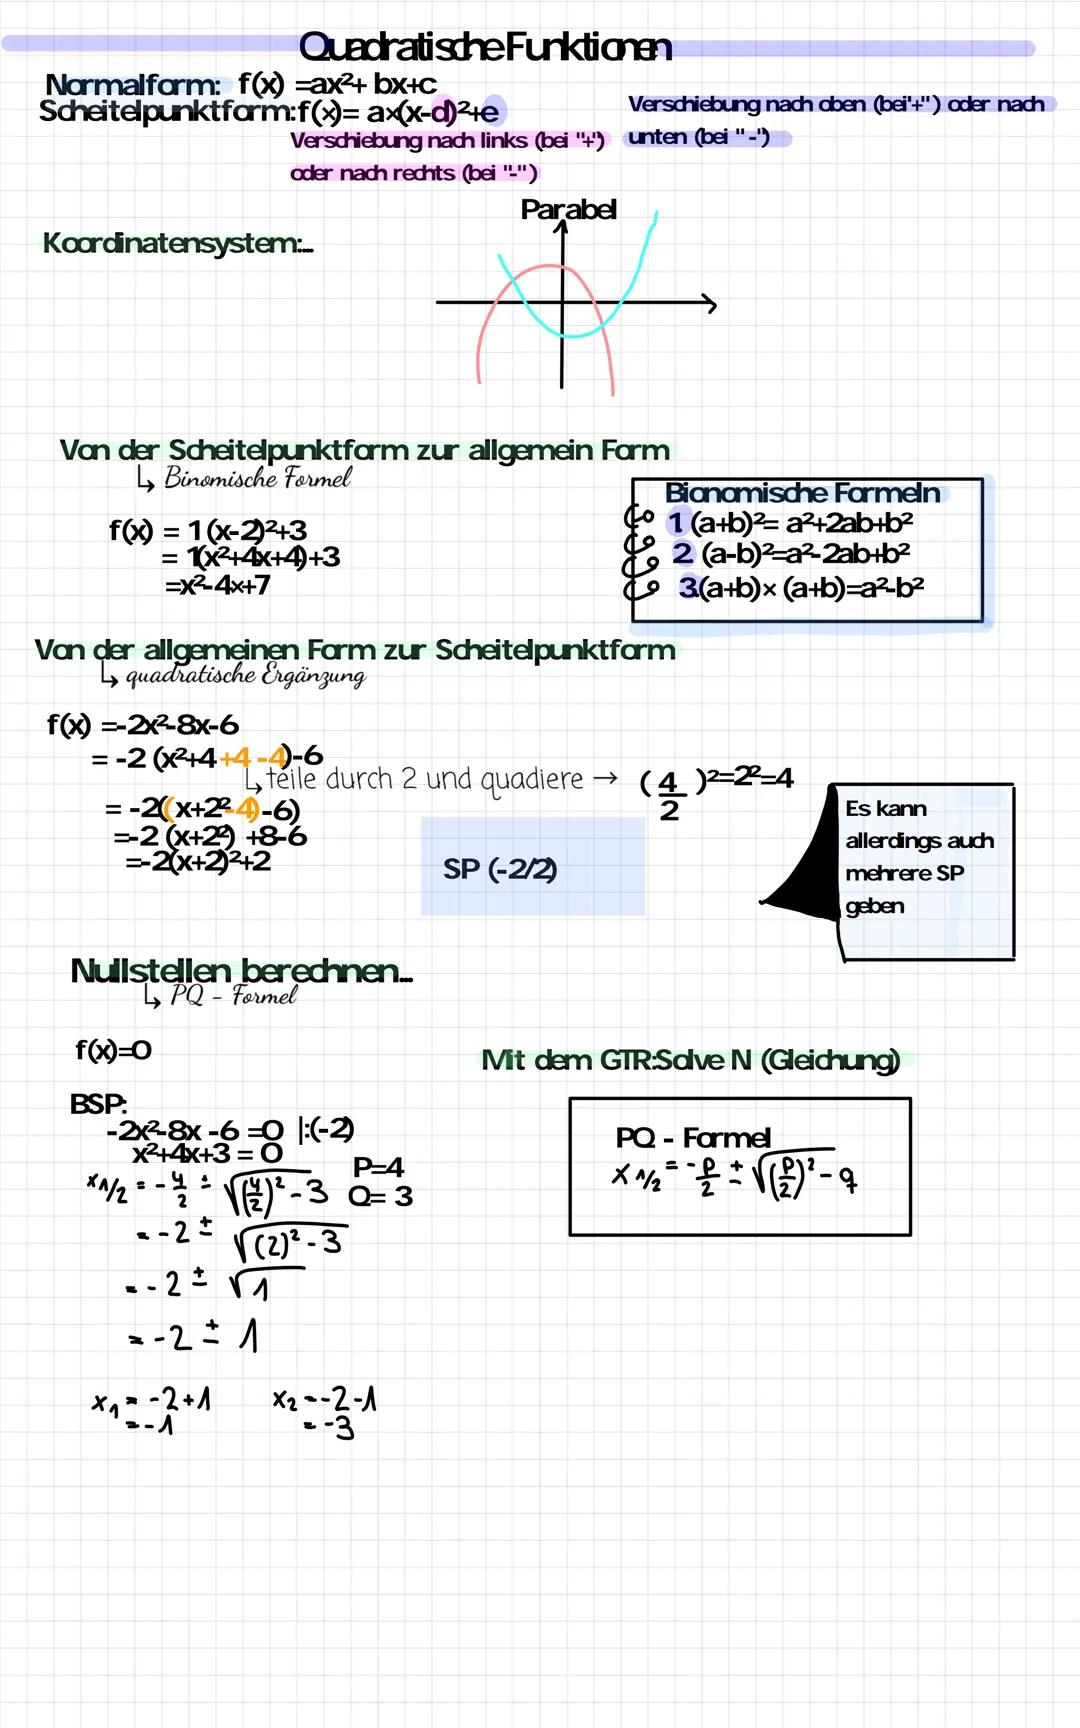 Quadratische Funktionen
Normalform: f(x) =ax²+ bx+c
Scheitelpunktform:f(x)= a×(x-d)²+e
Verschiebung nach oben (bei"+") oder nach
unten (bei "-")
Verschiebung nach links (bei "+")
oder nach rechts (bei "-")
Parabel
Koordinatensystem:...
Von der Scheitelpunktform zur allgemein Form
↳ Binomische Formel
f(x) = 1(x-2)²+3
= 1(x²+4x+4)+3
=x²-4x+7
Bionomische Formeln
1 (a+b)²= a²+2ab+b²
2 (a-b)²=a²-2ab+b²
3.(a+b)×(a+b)=a²-b²
Von der allgemeinen Form zur Scheitelpunktform
↳ quadratische Ergänzung
f(x) =-2x²-8x-6
= -2 (x²+4+4-4)-6
↳ teile durch 2 und quadiere → (4/2)²=2²=4
= -2((x+2²-4)-6)
=-2 (x+2²) +8-6
=-2(x+2)²+2
SP (-2/2)
Es kann
allerdings auch
mehrere SP
geben
Nullstellen berechnen...
↳ PQ - Formel
f(x)=0
Mit dem GTR:Solve N (Gleichung)
BSP:
-2x²-8x -6 =0 |:(-2)
x²+4x+3 = 0
P=4
Q= 3
x1/2 = -4/2 ± √(4/2)² - 3
= -2 ± √(2)² - 3
= -2 ± √1
= -2 ± 1
x₁ = -2+1
= -1
x₂ = -2-1
= -3
PQ - Formel
x1/2 = -p/2 ± √(p/2)² - q